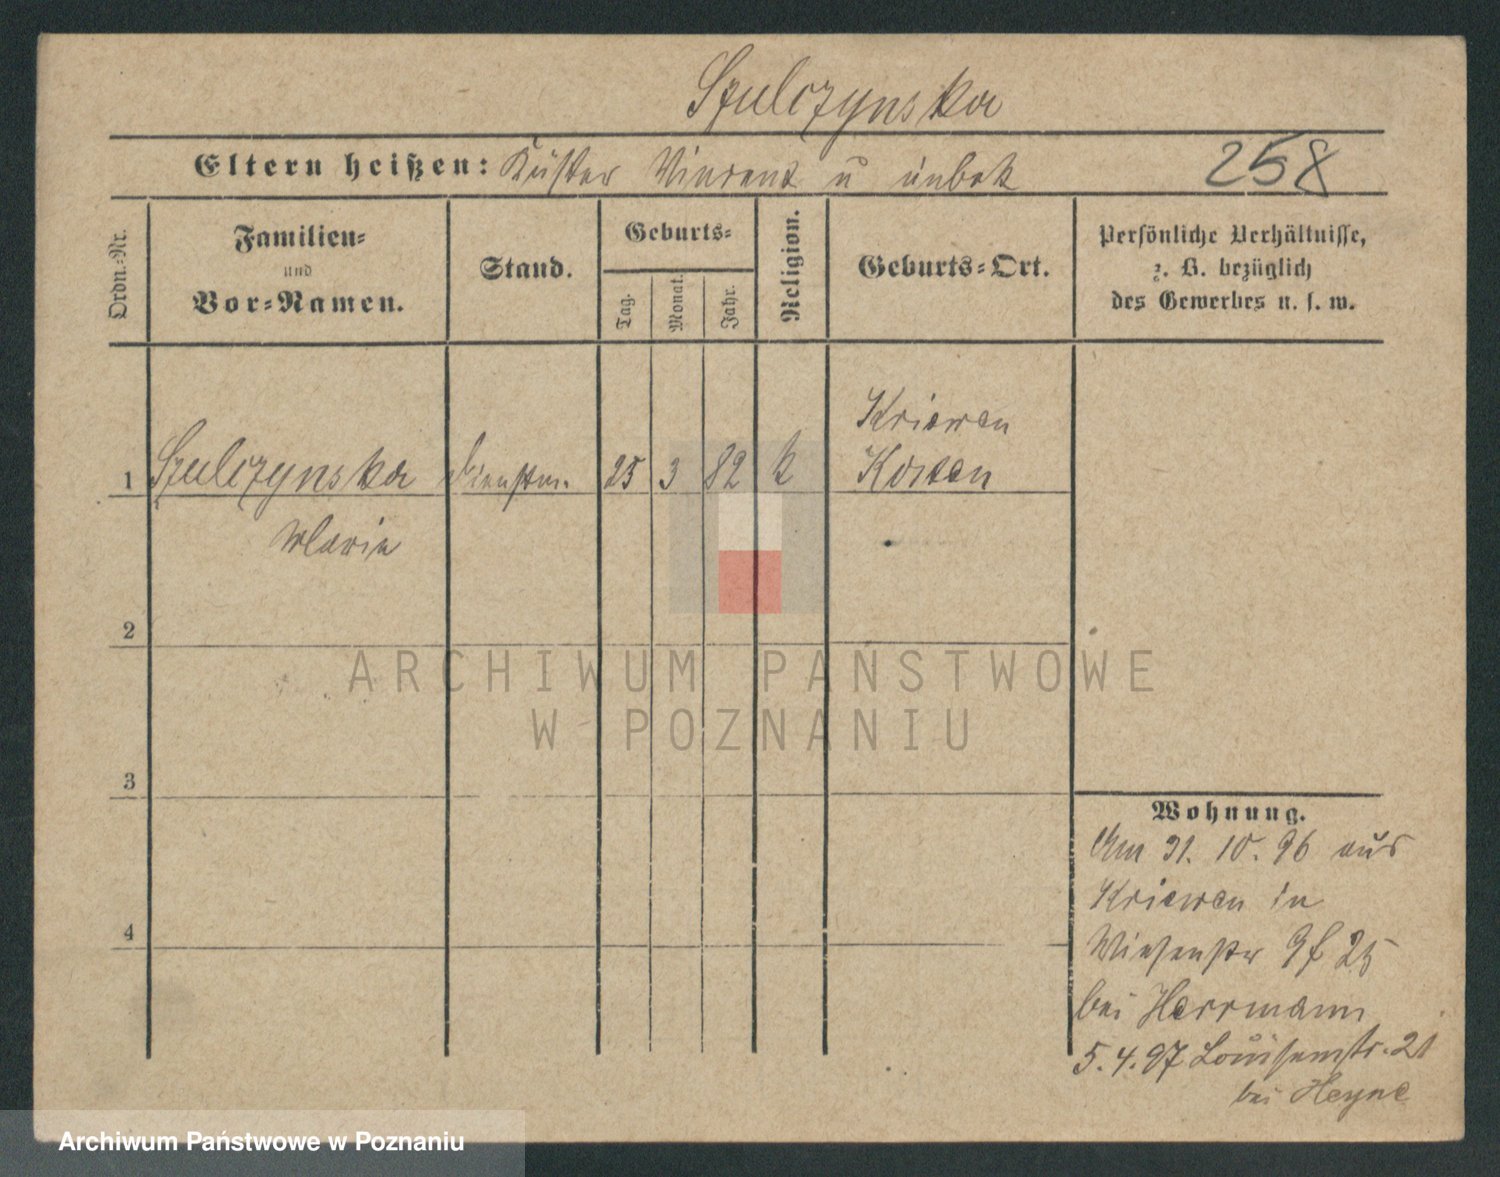 Szulczynska
Eltern heißen: Küster Vincent u unbek 258
Ordn.-Nr.
Familien-
und
Vor-Namen.
Stand.
Geburts-
Tag.
Monat.
Jahr.
Religion.
Geburts-Ort.
Persönliche Verhältnisse,
z. B. bezüglich
des Gewerbes u. s. w.
Kriewen
1 Szulczynska Dienstm. 25 3 82 k Kosten
Marie
2
3
4
Wohnung.
Am 31. 10. 96 aus
Kriewen in
Wiesenstr 25
bei Herrmann
5.4.97 Louisenstr. 21
bei Heyne
ARCHIWUM PAŃSTWOWE
W POZNANIU
Archiwum Państwowe w Poznaniu